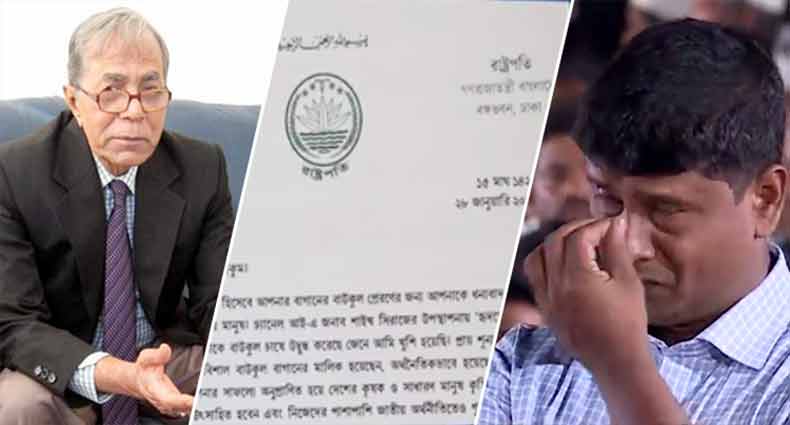 রাষ্ট্রপতি
গণপ্রজাতন্ত্রী বাংলাদে
বঙ্গভবন, ঢাকা
রাষ্ট্রপতি
১৫ মাঘ ১৪২
২৮ জানুয়ারি ২০
কুম।
হিসেবে আপনার বাগানের বাউকুল প্রেরণের জন্য আপনাকে ধন্যবাদ
মানুষ। চ্যানেল আই-এ জনাব শাইখ সিরাজের উপস্থাপনায় 'হৃদ
কে বাউকুল চাষে উদ্বুদ্ধ করেছে জেনে আমি খুশি হয়েছি। প্রায়
বিশাল বাউকুল বাগানের মালিক হয়েছেন, অর্থনৈতিকভাবে হয়েছে
নার সাফল্যে অনুপ্রাণিত হয়ে দেশের কৃষক ও সাধারণ মানুষ কৃষি
ৎসাহিত হবেন এবং নিজেদের পাশাপাশি জাতীয় অর্থনীতিতেও